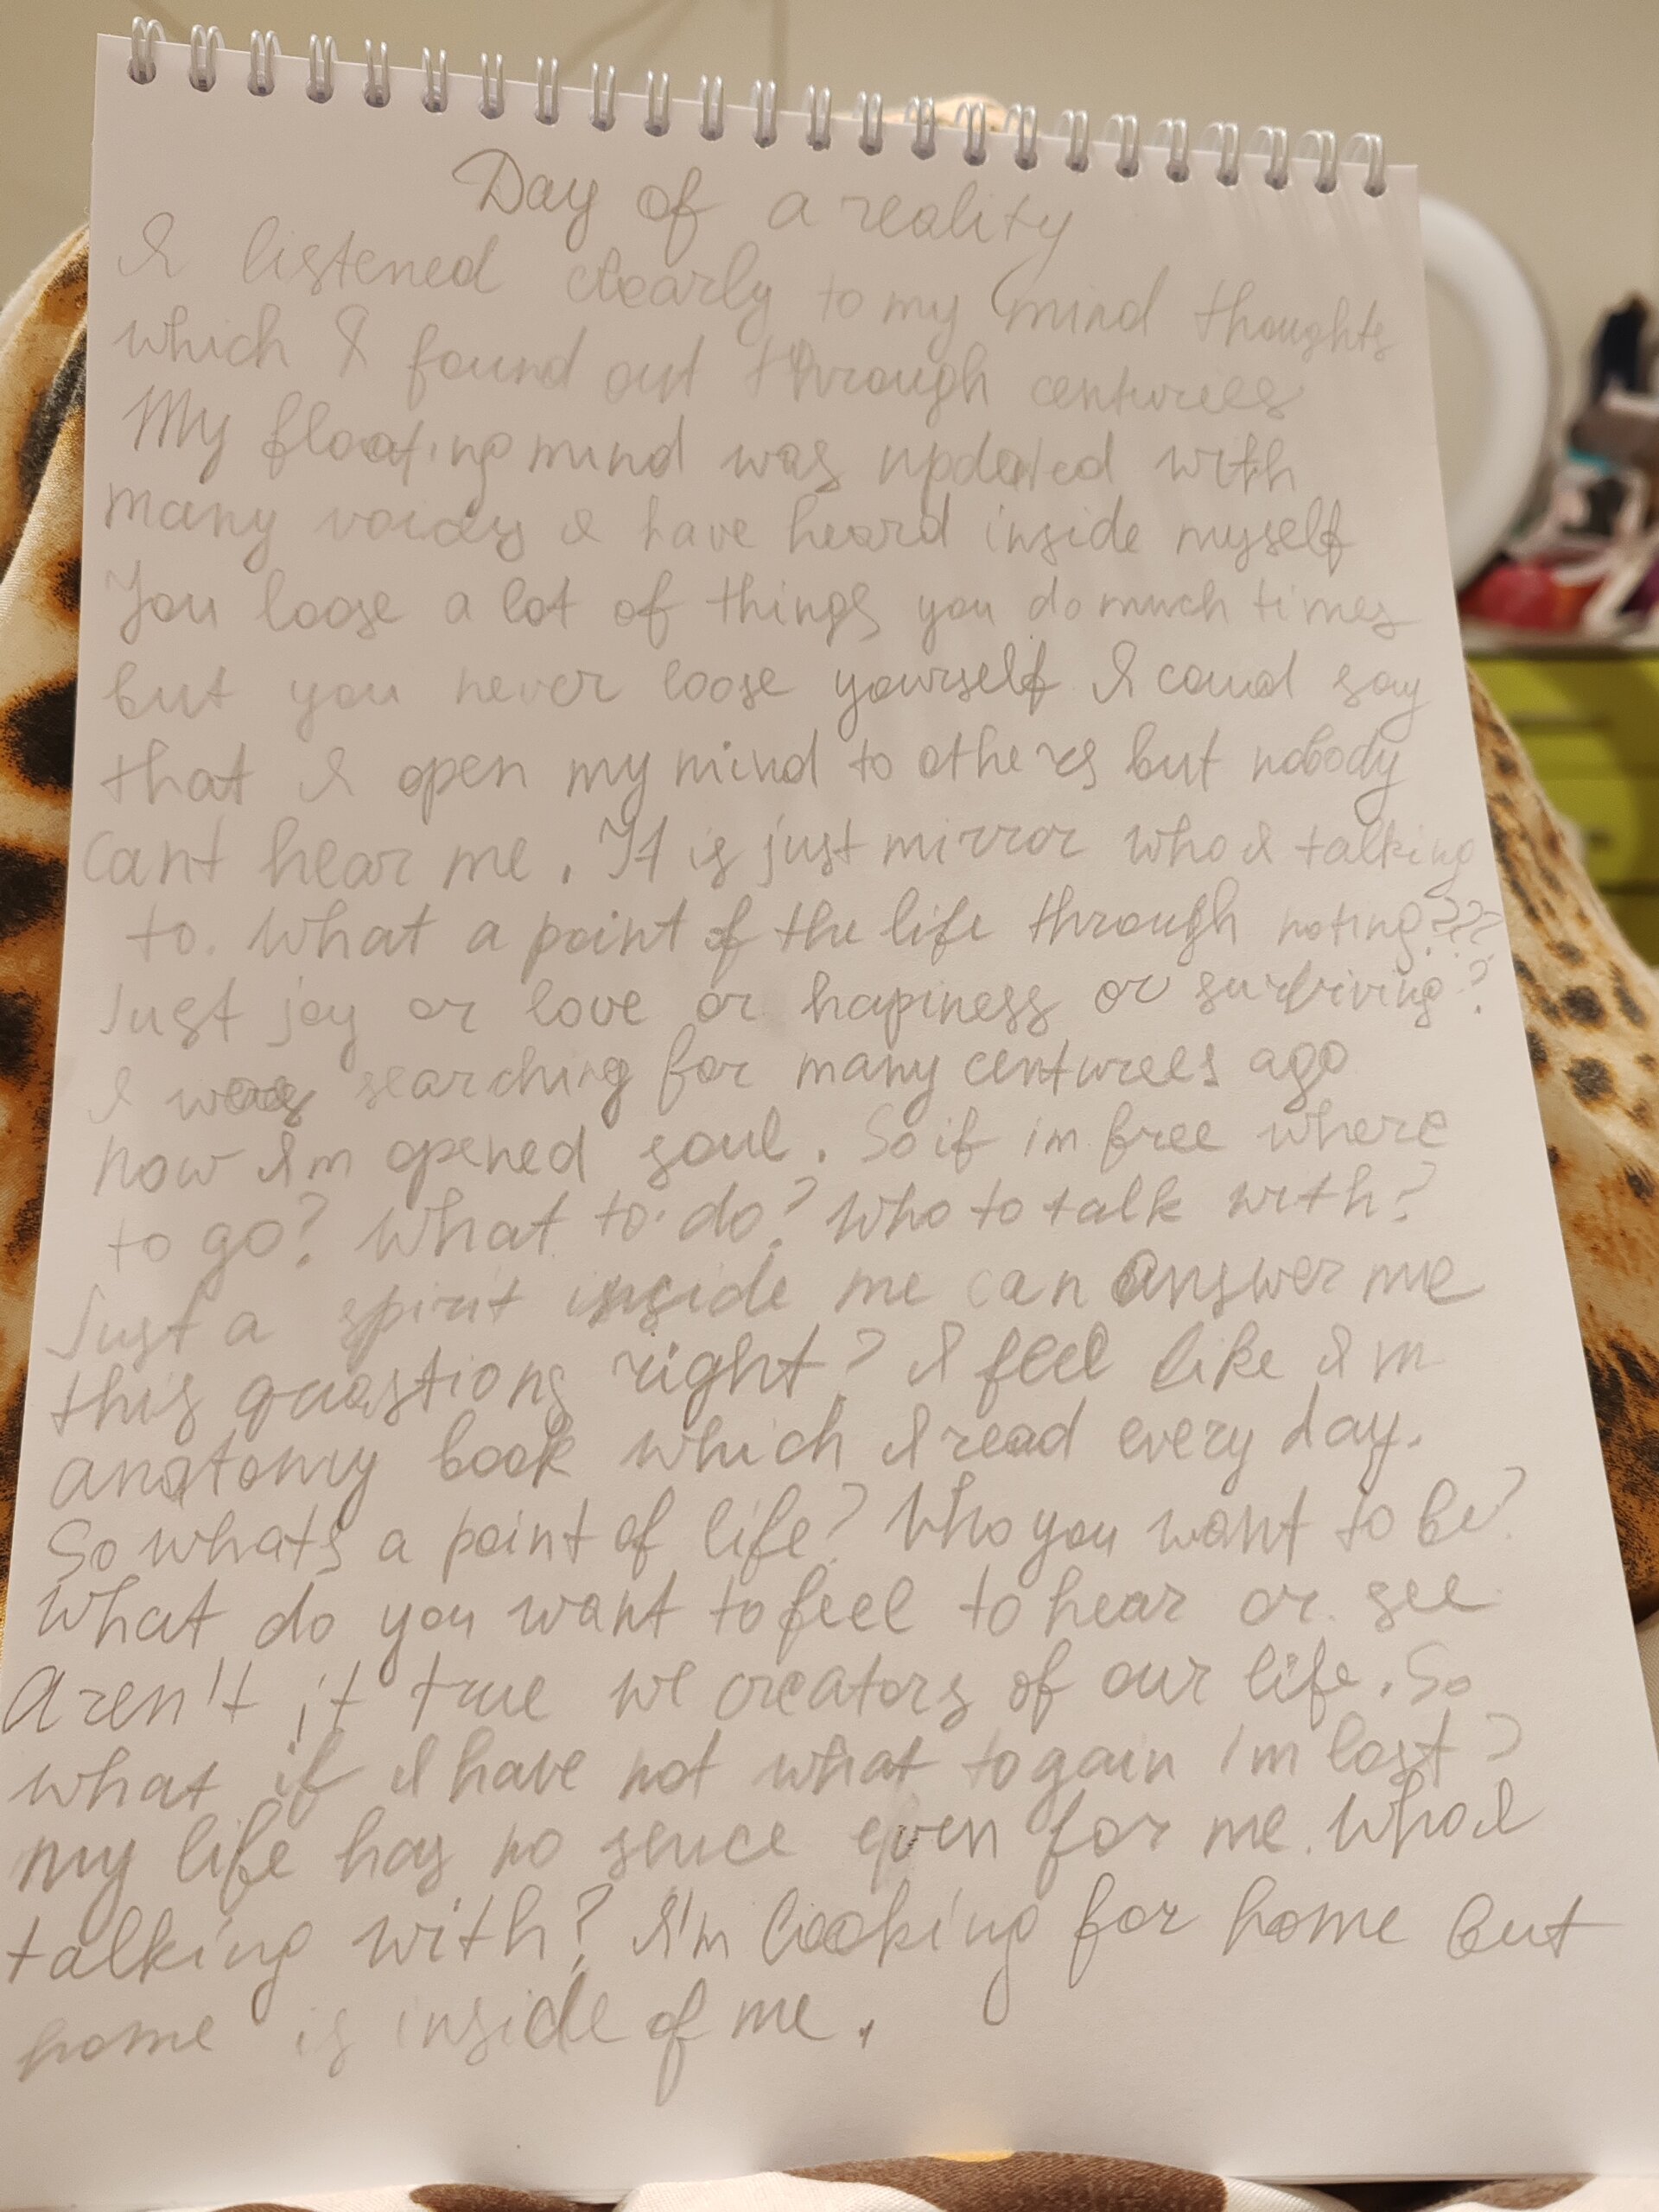 Day of a reality
I listened clearly to my mind thoughts
which I found out through centurees
My floating mind was updated with
many voices I have heard inside myself
You loose a lot of things you do much times
but you never loose yourself I coud say
that I open my mind to others but nobody
cant hear me. It is just mirror who I talking
to. What a point of the life through noting???
Just joy or love or hapiness or surviving?
I was searching for many centurees ago
now Im opened soul. So if im free where
to go? What to do? Who to talk with?
Just a spirit inside me can answer me
this quastions right? I feel like Im
anatomy book which I read every day.
So whats a point of life? Who you want to be?
What do you want to feel to hear or see
Aren't it true we creators of our life. So
what if I have not what to gain I'm lost?
my life has no sence even for me. Who I
talking with? I'm looking for home but
home is inside of me.